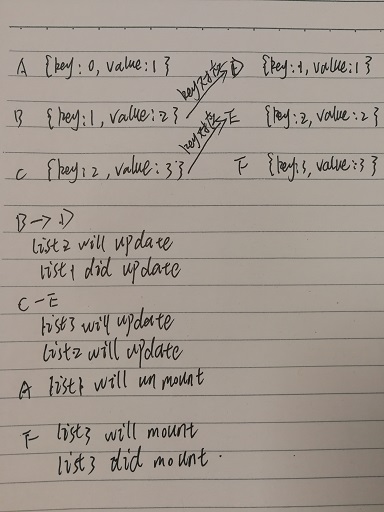 A {key: 0, value: 1} key对应 D {key: 1, value: 1}
B {key: 1, value: 2} key对应 E {key: 2, value: 2}
C {key: 2, value: 3} F {key: 3, value: 3}
B → D
list2 will update
list1 did update
C - E
list3 will update
list2 will update
A list1 will unmount
F list3 will mount
list3 did mount.